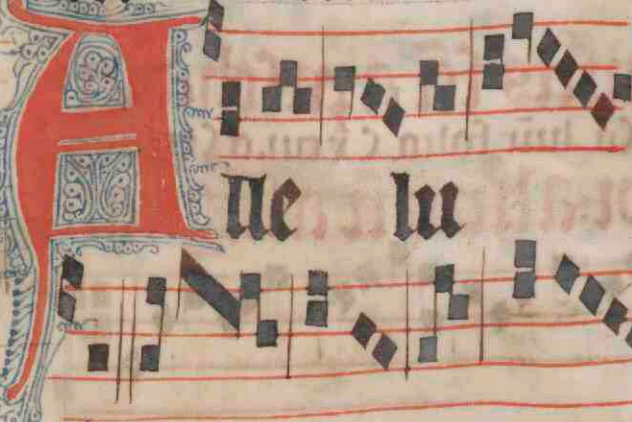 A lle lu